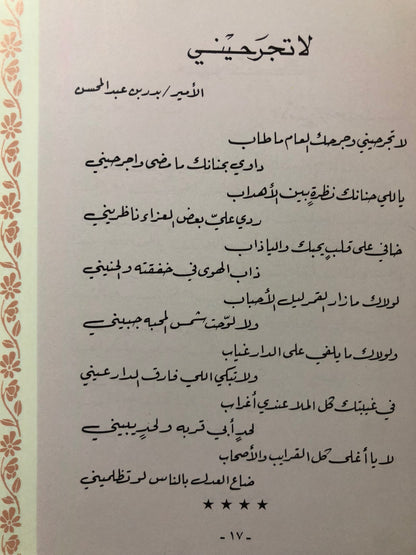 لا تجرَحيْني
الأمير/ بدر بن عبد المحسن
لا تجرحيني وجرحك العام ما طاب
داوي بحنانك ما مضى واجرحيني
يا للي حنانك نظرةٍ بين الأهداب
ردي عليّ بعض العزاء ناظريني
خافي على قلبٍ يحبك واليا ذاب
ذاب الهوى في خفقته والحنيني
لولاك ما زار القمر ليل الأحباب
ولا لوّحت شمس المحبه جبيني
ولولاك ما يلفي على الدار غياب
ولا تبكي اللي فارق الدار عيني
في غيبتك كل الملا عندي أغراب
لحدٍ أبي قربه ولحدٍ يبيني
لا يا أغلى كل القرايب والأصحاب
ضاع العدل بالناس لو تظلميني
★ ★ ★ ★
- ١٧ -